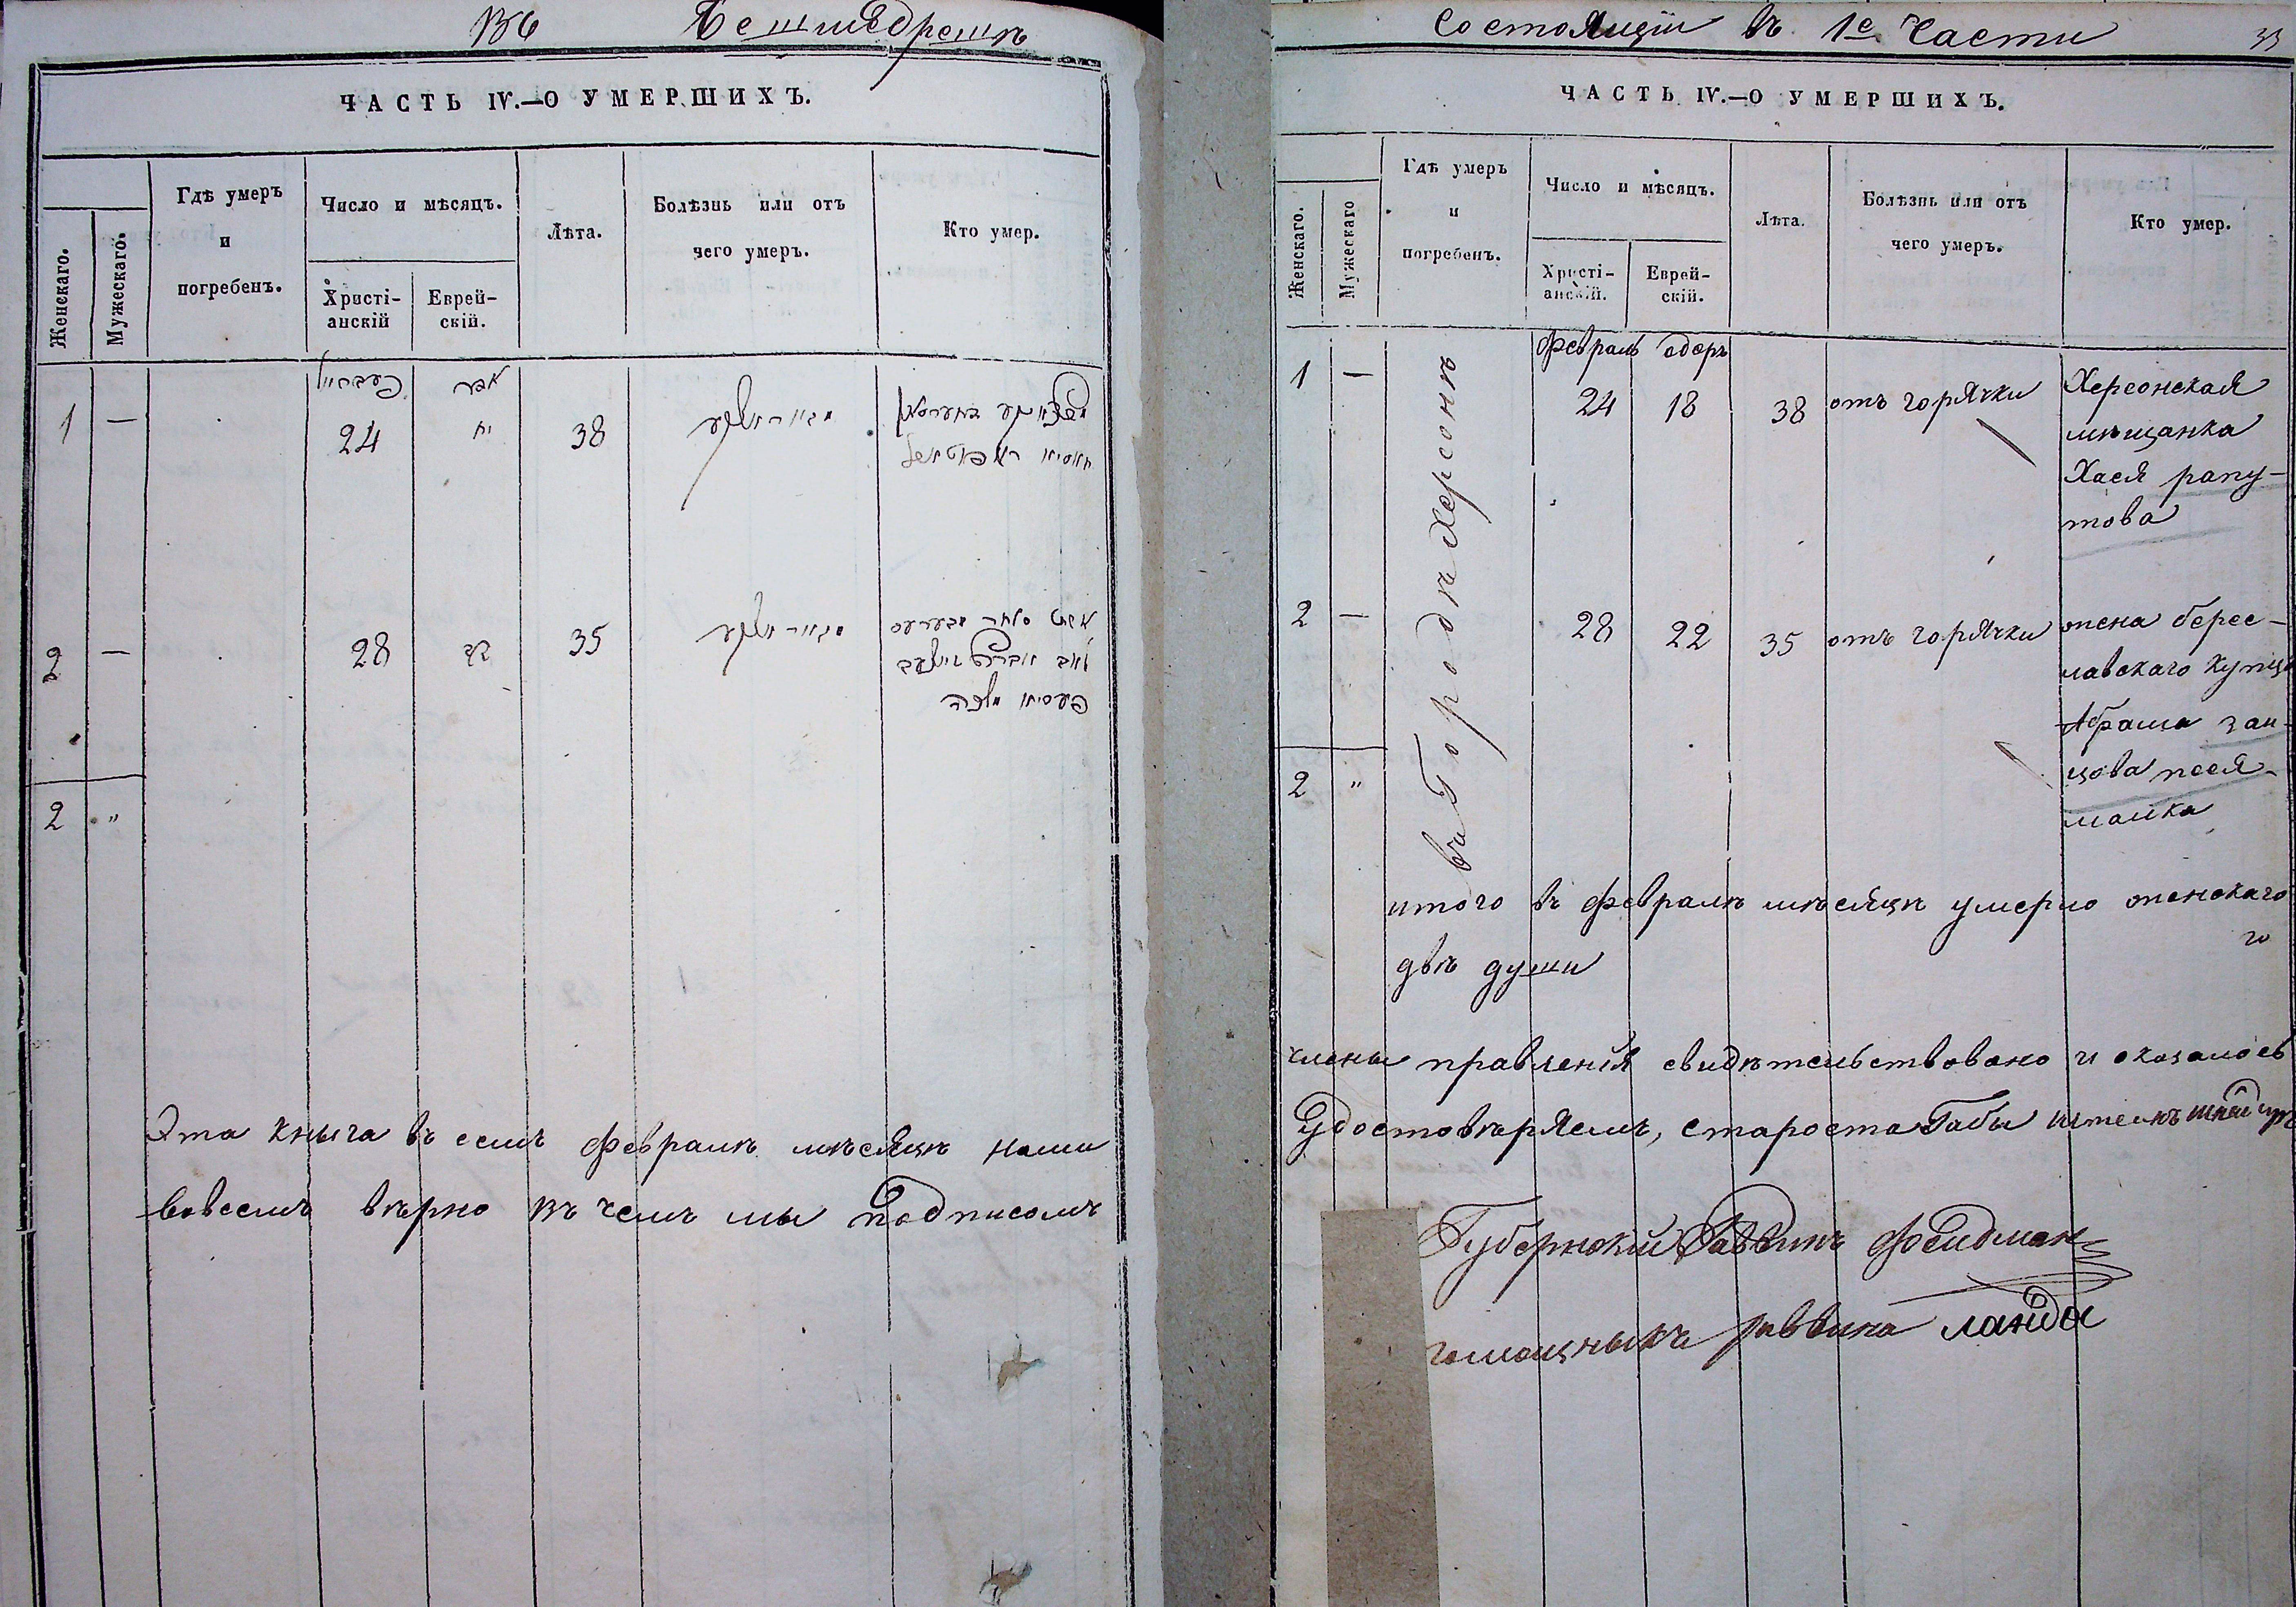 Бешмедрешъ
ЧАСТЬ IV.—О УМЕРШИХЪ.
Женскаго.
Мужескаго.
Гдѣ умеръ
и
погребенъ.
Число и мѣсяцъ.
Христі-
анскій
Еврей-
скій.
Лѣта.
Болѣзнь или отъ
чего умеръ.
Кто умер.
1 — 24 יח 38
2 — 28 כב 35
2 "
Эта кныга въ семъ февралѣ мѣсяцѣ нами
вовсемъ вѣрно въ чемъ мы подписомъ
Состоящій въ 1е Части 33
ЧАСТЬ IV.—О УМЕРШИХЪ.
Женскаго.
Мужескаго
Гдѣ умеръ
и
погребенъ.
Число и мѣсяцъ.
Христі-
анскій.
Еврей-
скій.
Лѣта.
Болѣзнь или отъ
чего умеръ.
Кто умер.
въ Городѣ Херсонѣ
февраль адеръ
1 — 24 18 38 отъ горячки Херсонская
мѣщанка
Хася рапу-
това
2 — 28 22 35 отъ горячки жена берес-
лавскаго купца
Абрама зай-
цова песя
малка
2 "
итого въ февралѣ мѣсяцѣ умерло женскаго
двѣ души
члены правленія свидѣтельствовано и оказалось
Удостовѣряемъ, староста Габы
Губернскій Раввинъ Фелдман
помощныкъ раввина ланда